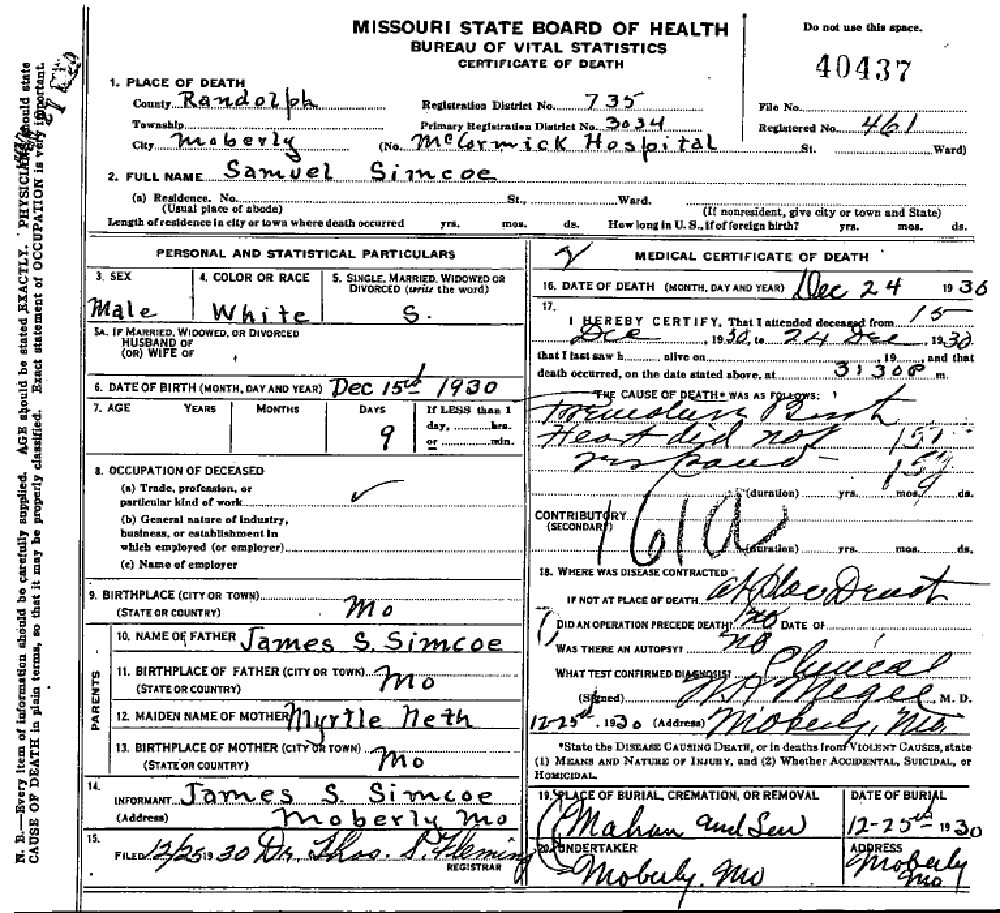 MISSOURI STATE BOARD OF HEALTH
BUREAU OF VITAL STATISTICS
CERTIFICATE OF DEATH
Do not use this space.
40437
1. PLACE OF DEATH
County Randolph
Registration District No. 735
File No.
Township
Primary Registration District No. 3034
Registered No. 461
City Moberly (No. McCormick Hospital St. Ward)
2. FULL NAME Samuel Simcoe
(a) Residence. No. St., Ward.
(Usual place of abode) (If nonresident, give city or town and State)
Length of residence in city or town where death occurred yrs. mos. ds. How long in U.S., if of foreign birth? yrs. mos. ds.
PERSONAL AND STATISTICAL PARTICULARS
3. SEX
Male
4. COLOR OR RACE
White
5. SINGLE, MARRIED, WIDOWED OR
DIVORCED (write the word)
S.
5A. IF MARRIED, WIDOWED, OR DIVORCED
HUSBAND OF
(OR) WIFE OF
6. DATE OF BIRTH (MONTH, DAY AND YEAR) Dec 15th 1930
7. AGE YEARS MONTHS DAYS If LESS than 1
day, hrs.
or min.
9
8. OCCUPATION OF DECEASED
(a) Trade, profession, or
particular kind of work
(b) General nature of industry,
business, or establishment in
which employed (or employer)
(c) Name of employer
9. BIRTHPLACE (CITY OR TOWN)
(STATE OR COUNTRY) Mo
PARENTS
10. NAME OF FATHER James S. Simcoe
11. BIRTHPLACE OF FATHER (CITY OR TOWN)
(STATE OR COUNTRY) Mo
12. MAIDEN NAME OF MOTHER Myrtle Neth
13. BIRTHPLACE OF MOTHER (CITY OR TOWN)
(STATE OR COUNTRY) Mo
14.
INFORMANT James S. Simcoe
(Address) Moberly Mo
15.
FILED 12/25 1930 Dr. Thos. S. Fleming
REGISTRAR
2 MEDICAL CERTIFICATE OF DEATH
16. DATE OF DEATH (MONTH, DAY AND YEAR) Dec 24 1930
17.
I HEREBY CERTIFY, That I attended deceased from 15
Dec, 1930, to 24 Dec, 1930
that I last saw h alive on , 19 , and that
death occurred, on the date stated above, at 3:30 P m.
THE CAUSE OF DEATH* WAS AS FOLLOWS:
Heart did not
respond
(duration) yrs. mos. ds.
CONTRIBUTORY
(SECONDARY)
161a
(duration) yrs. mos. ds.
18. WHERE WAS DISEASE CONTRACTED
IF NOT AT PLACE OF DEATH at place
DID AN OPERATION PRECEDE DEATH? no DATE OF
WAS THERE AN AUTOPSY? no
WHAT TEST CONFIRMED DIAGNOSIS? Physical
(Signed) McGee, M. D.
12-25th, 1930 (Address) Moberly, Mo.
*State the DISEASE CAUSING DEATH, or in deaths from VIOLENT CAUSES, state
(1) MEANS AND NATURE OF INJURY, and (2) Whether ACCIDENTAL, SUICIDAL, or
HOMICIDAL.
19. PLACE OF BURIAL, CREMATION, OR REMOVAL
DATE OF BURIAL
Mahan and Son
12-25th 1930
20. UNDERTAKER
Moberly, Mo
ADDRESS
Moberly
Mo
N. B.—Every item of information should be carefully supplied. AGE should be stated EXACTLY. PHYSICIANS should state
CAUSE OF DEATH in plain terms, so that it may be properly classified. Exact statement of OCCUPATION is very important.